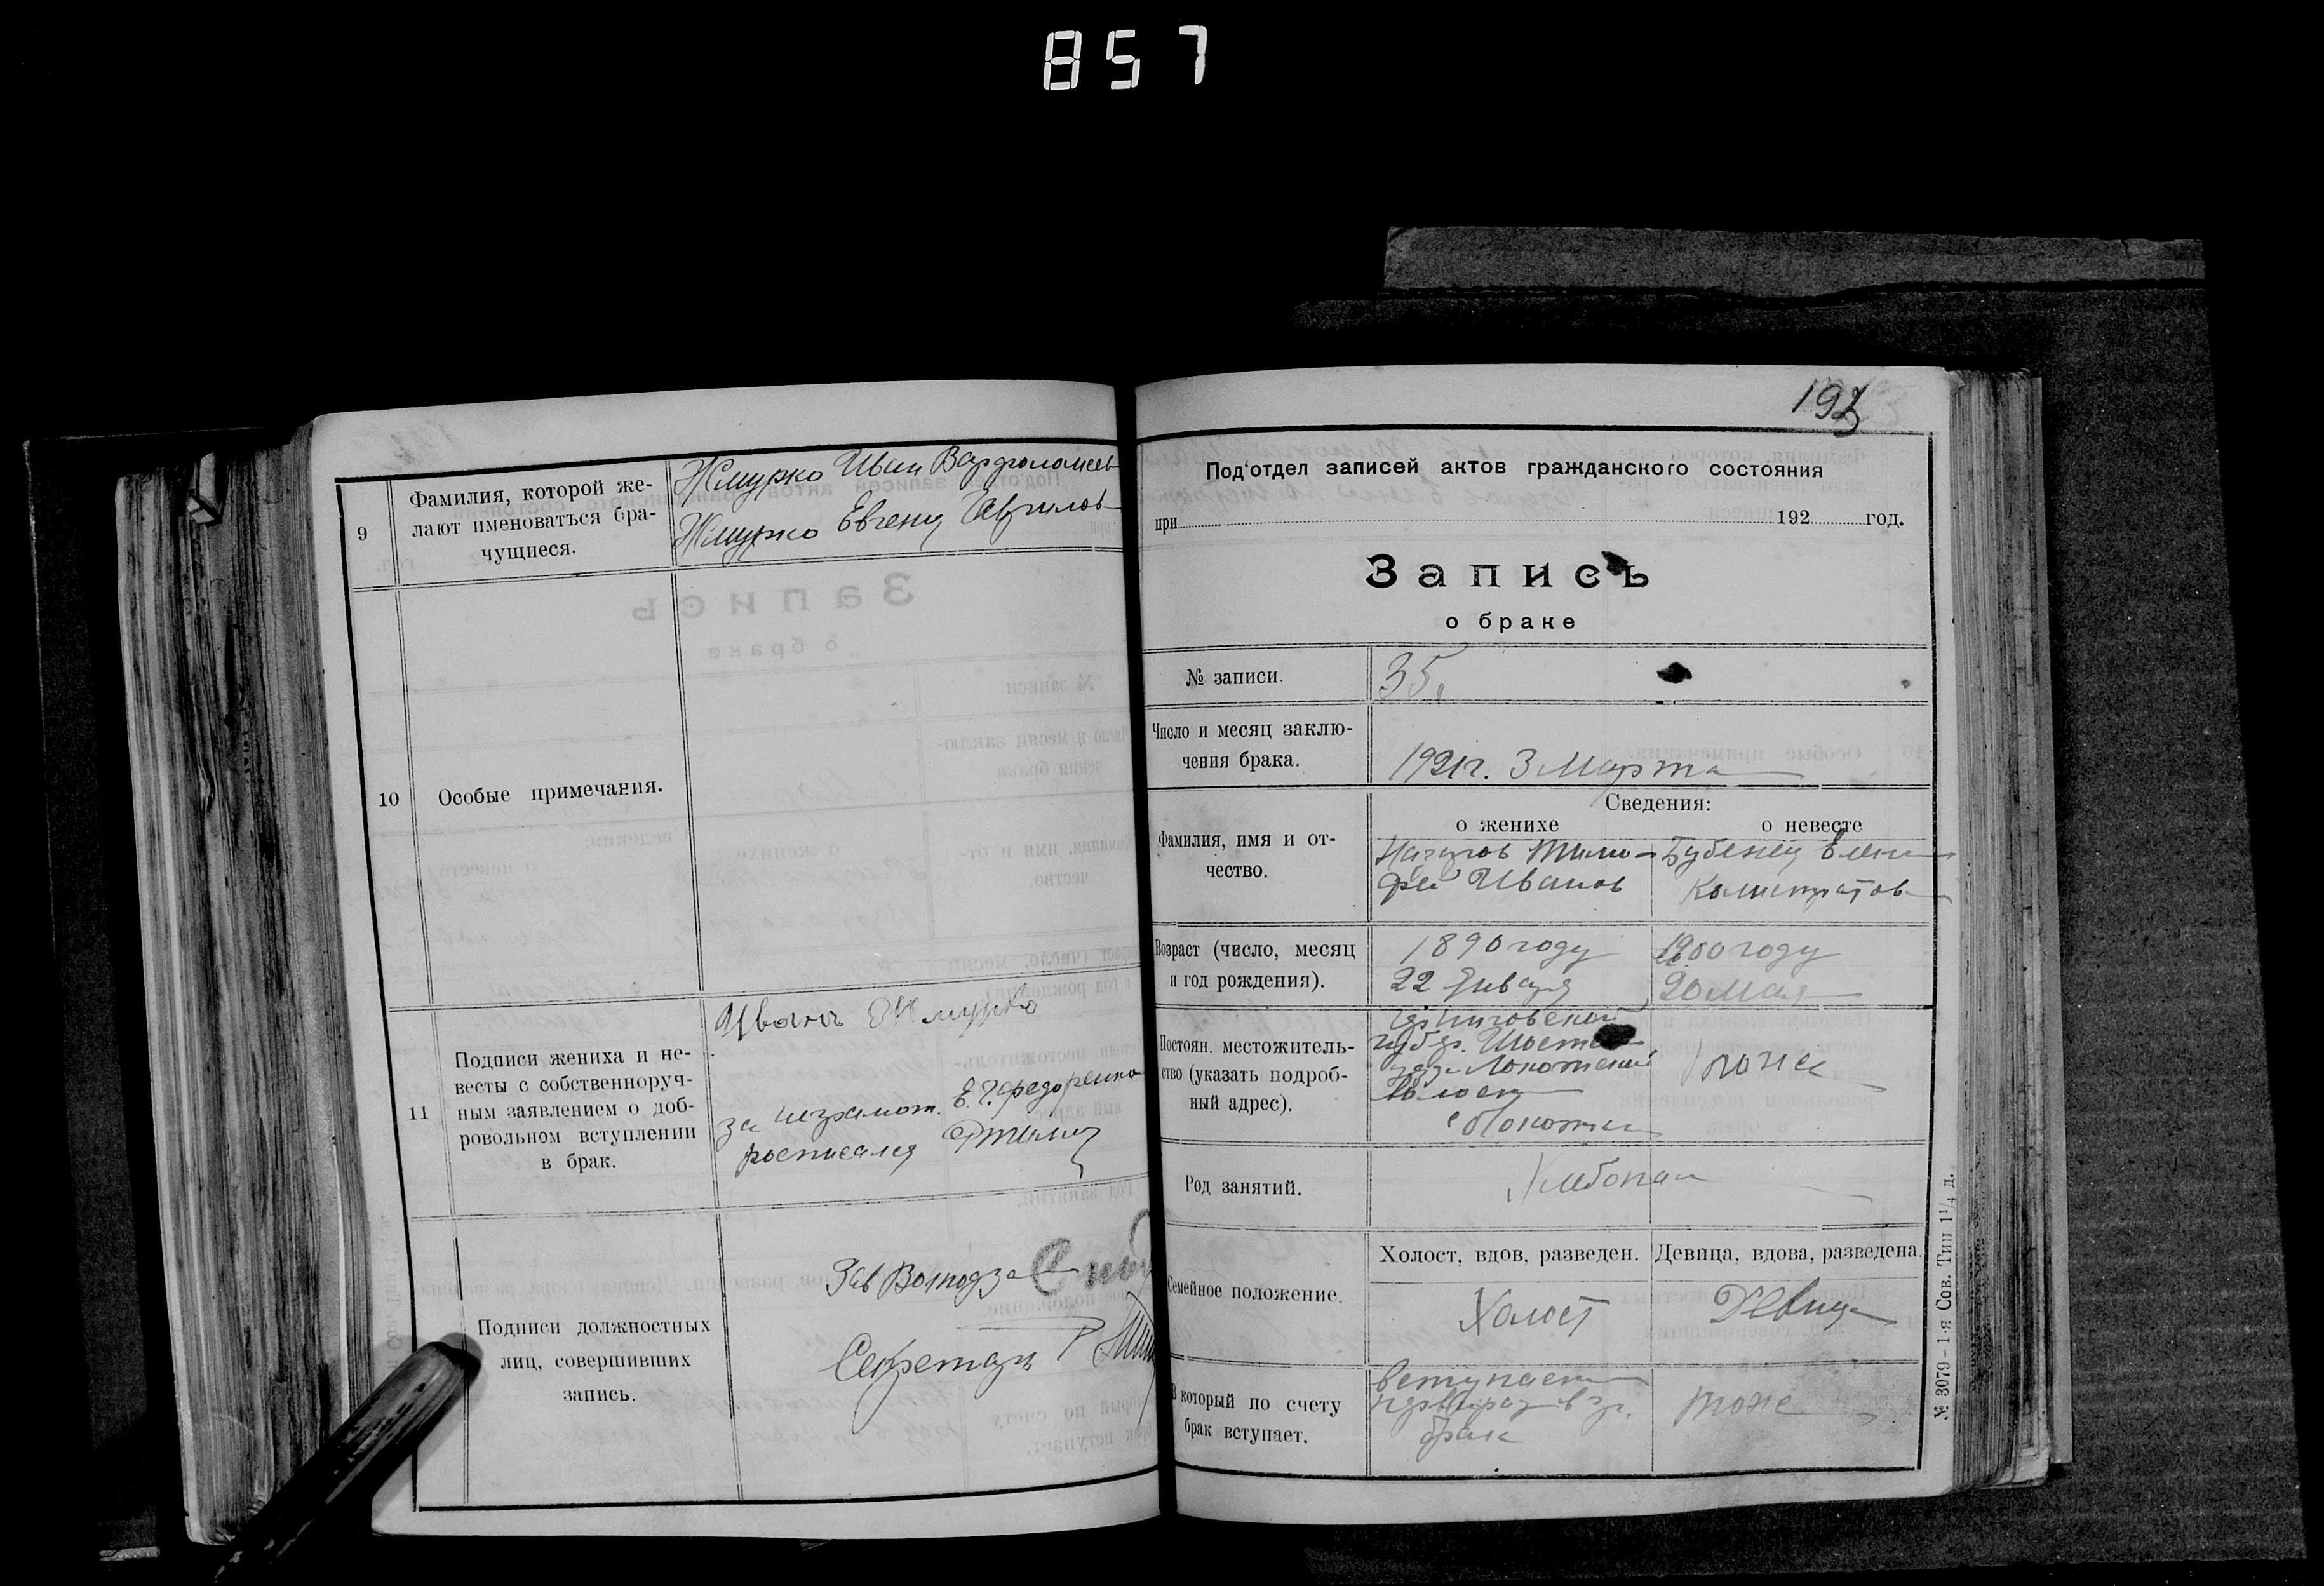 857
9
Фамилия, которой же-
лают именоваться бра-
чущиеся.
Жмурко Иван Варфоломеев
Жмурко Евгени Гаврилов
10
Особые примечания.
11
Подписи жениха и не-
весты с собственноруч-
ным заявлением о доб-
ровольном вступлении
в брак.
Иванъ Жмурко
за неграмот. Е. Г. Федоренко
росписался
Подписи должностных
лиц, совершивших
запись.
Зав
Секретарь
193
Под'отдел записей актов гражданского состояния
при 192 год.
Запись
о браке
№ записи.
35.
Число и месяц заклю-
чения брака.
1921г. 3 Марта
Сведения:
о женихе
о невесте
Фамилия, имя и от-
чество.
Тимо-
фей Иванов
Бубенец Елени
Калистратов
Возраст (число, месяц
и год рождения).
1890 году
22 Января
1900 году
20 Мая
Постоян. местожитель-
ство (указать подроб-
ный адрес).
Черниговской
губер.
Локотской
волости
с Локотки
тоже
Род занятий.
Хлебопаш
Семейное положение.
Холост, вдов, разведен.
Девица, вдова, разведена.
Холост
Девица
В который по счету
брак вступает.
вступает
первый раз в
брак
тоже
№ 3079–1-я Сов. Тип 1¹/₄ д.